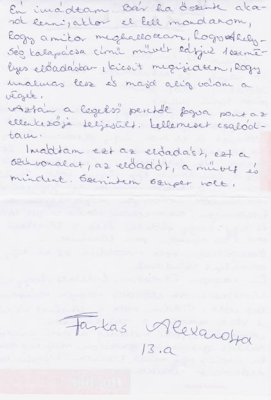 Én imádtam. Bár ha őszinte aka-
rok lenni, akkor el kell mondanom,
hogy amikor meghallottam, hogy A hely-
ség kalapácsa című művet látjuk személ-
yes előadásban, kicsit megijedtem, hogy
unalmas lesz és majd alig várom a
végét.
Aztán a legelső perctől fogva pont az
ellenkezője teljesült. Kellemeset csalód-
tam.
Imádtam ezt az előadást, ezt a
színvonalat, az előadót, a művet és
mindent. Szerintem szuper volt.
Farkas Alexandra
13.a